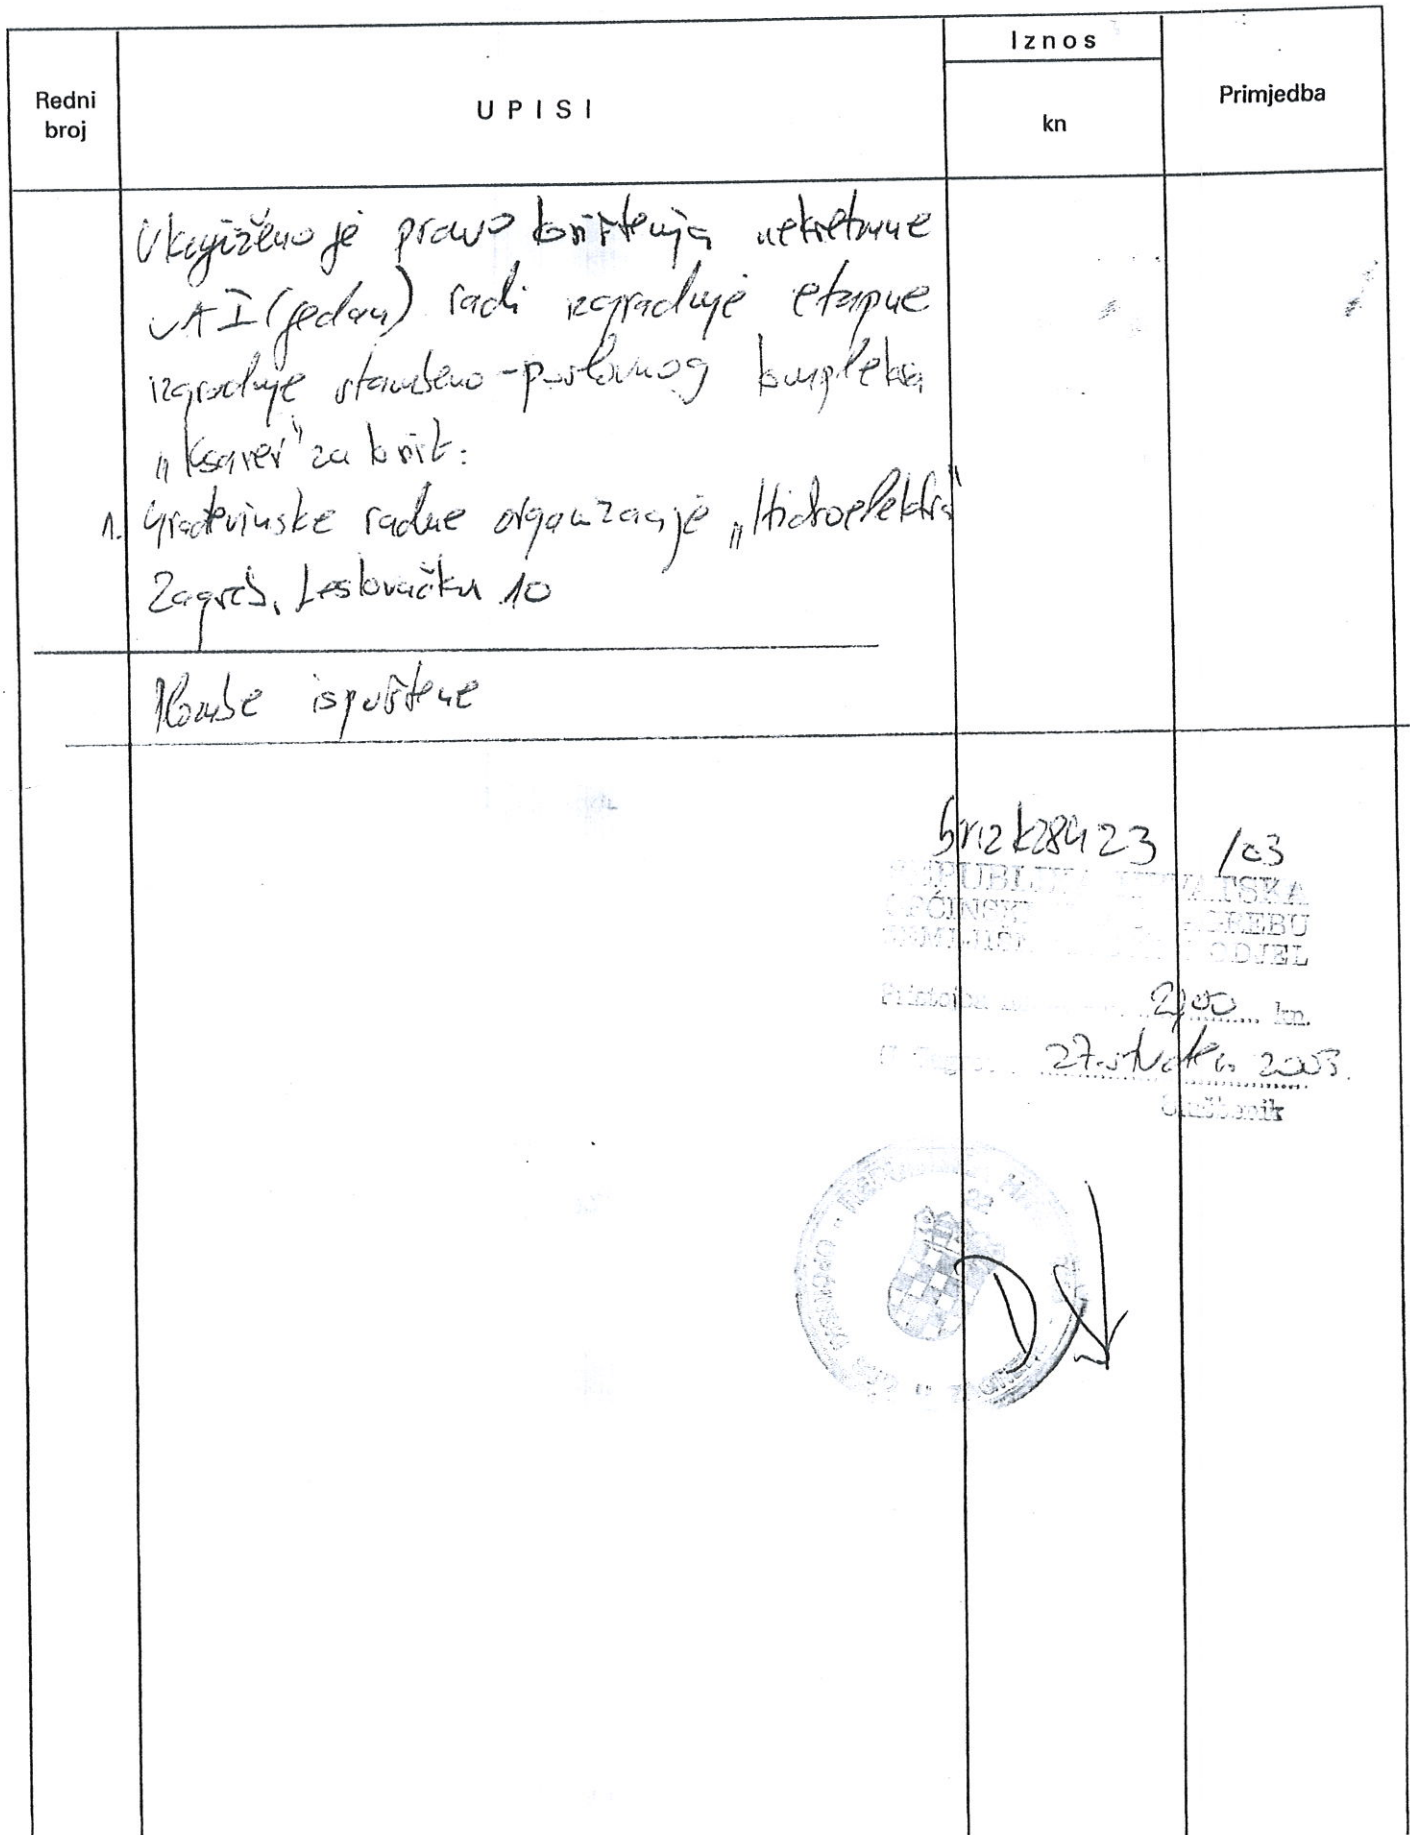 Iznos
Redni
broj
UPISI
kn
Primjedba
Uknjiženo je pravo korištenja nekretnine
u A I (jedan) radi izgradnje etapne
izgradnje stambeno-poslovnog kompleksa
„Ksaver" za korist:
1. Građevinske radne organizacije „Hidroelektra"
Zagreb, 10
Plombe ispuštene
Briz k28423 /03
REPUBLIKA HRVATSKA
OPĆINSKI ZAGREBU
ODJEL
Pristojba 2,00 kn.
U Zagrebu 27. studen 2003.
Službenik